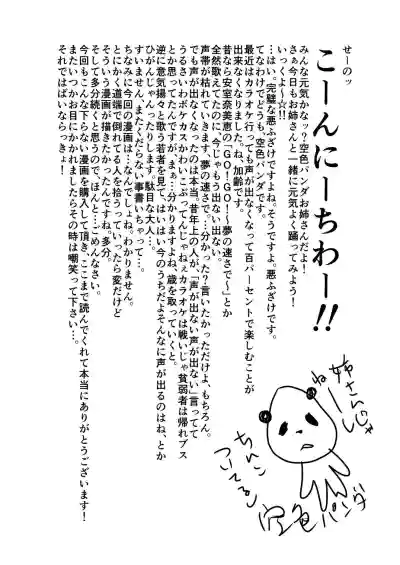 せーのッ
こーんにーちわー!!
みんな元気かなッ?空色パンダお姉さんだよ!
さぁ今日もお姉さんと一緒に元気よく踊ってみよう!
いっくよ~!☆!!
…はい。完璧な悪ふざけですよね。そうですよ。悪ふざけです。
てなわけでどうも、空色パンダです。
最近はカラオケ行っても声が出なくなって百パーセントで楽しむことが
出来なくなりました。ね、加齢です。
昔なら安室奈美恵の「GO!GO!〜夢の速さで〜」とか
全然歌えてたのに、今じゃもう出ない出ない。
声帯が枯れていきます、夢の速さで。…分かった?言いたかっただけよ、もちろん。
でも声が出なくなったのは本当。昔年上の人が、「声が出ない声が出ない」言ってて
うるさいわボケカスかわいこぶってんじゃねぇカラオケは戦いじゃ貧弱者は帰れブス
とか思ってたんですが、まぁ…分かりますよね、歳を取っていくと。
逆に意気揚々と歌う若者を見て、はいはい今のうちだよそんなに声が出るのはね、とか
ひがんじゃったりします。駄目な大人…
すいません、まだくだらない事書いちゃって…。
ちなみに今回の漫画は…なんでしょうね。わかりません。
とにかく道端で倒れてる人を拾うっていったら変だけど
そういう漫画が描きたかったんですね。多分。
そして多分続くと思うので、ほんと…ごめんなさい。
今回もこんな下らない漫画を購入して頂き、ここまで読んでくれて本当にありがとうございます!
またいつかお目にかかれましたらその時は嘲笑って下さい…。
それではばいならっきょ!
姉さんじゃ
ねーし
ちんこ
ついてる
空色パンダ